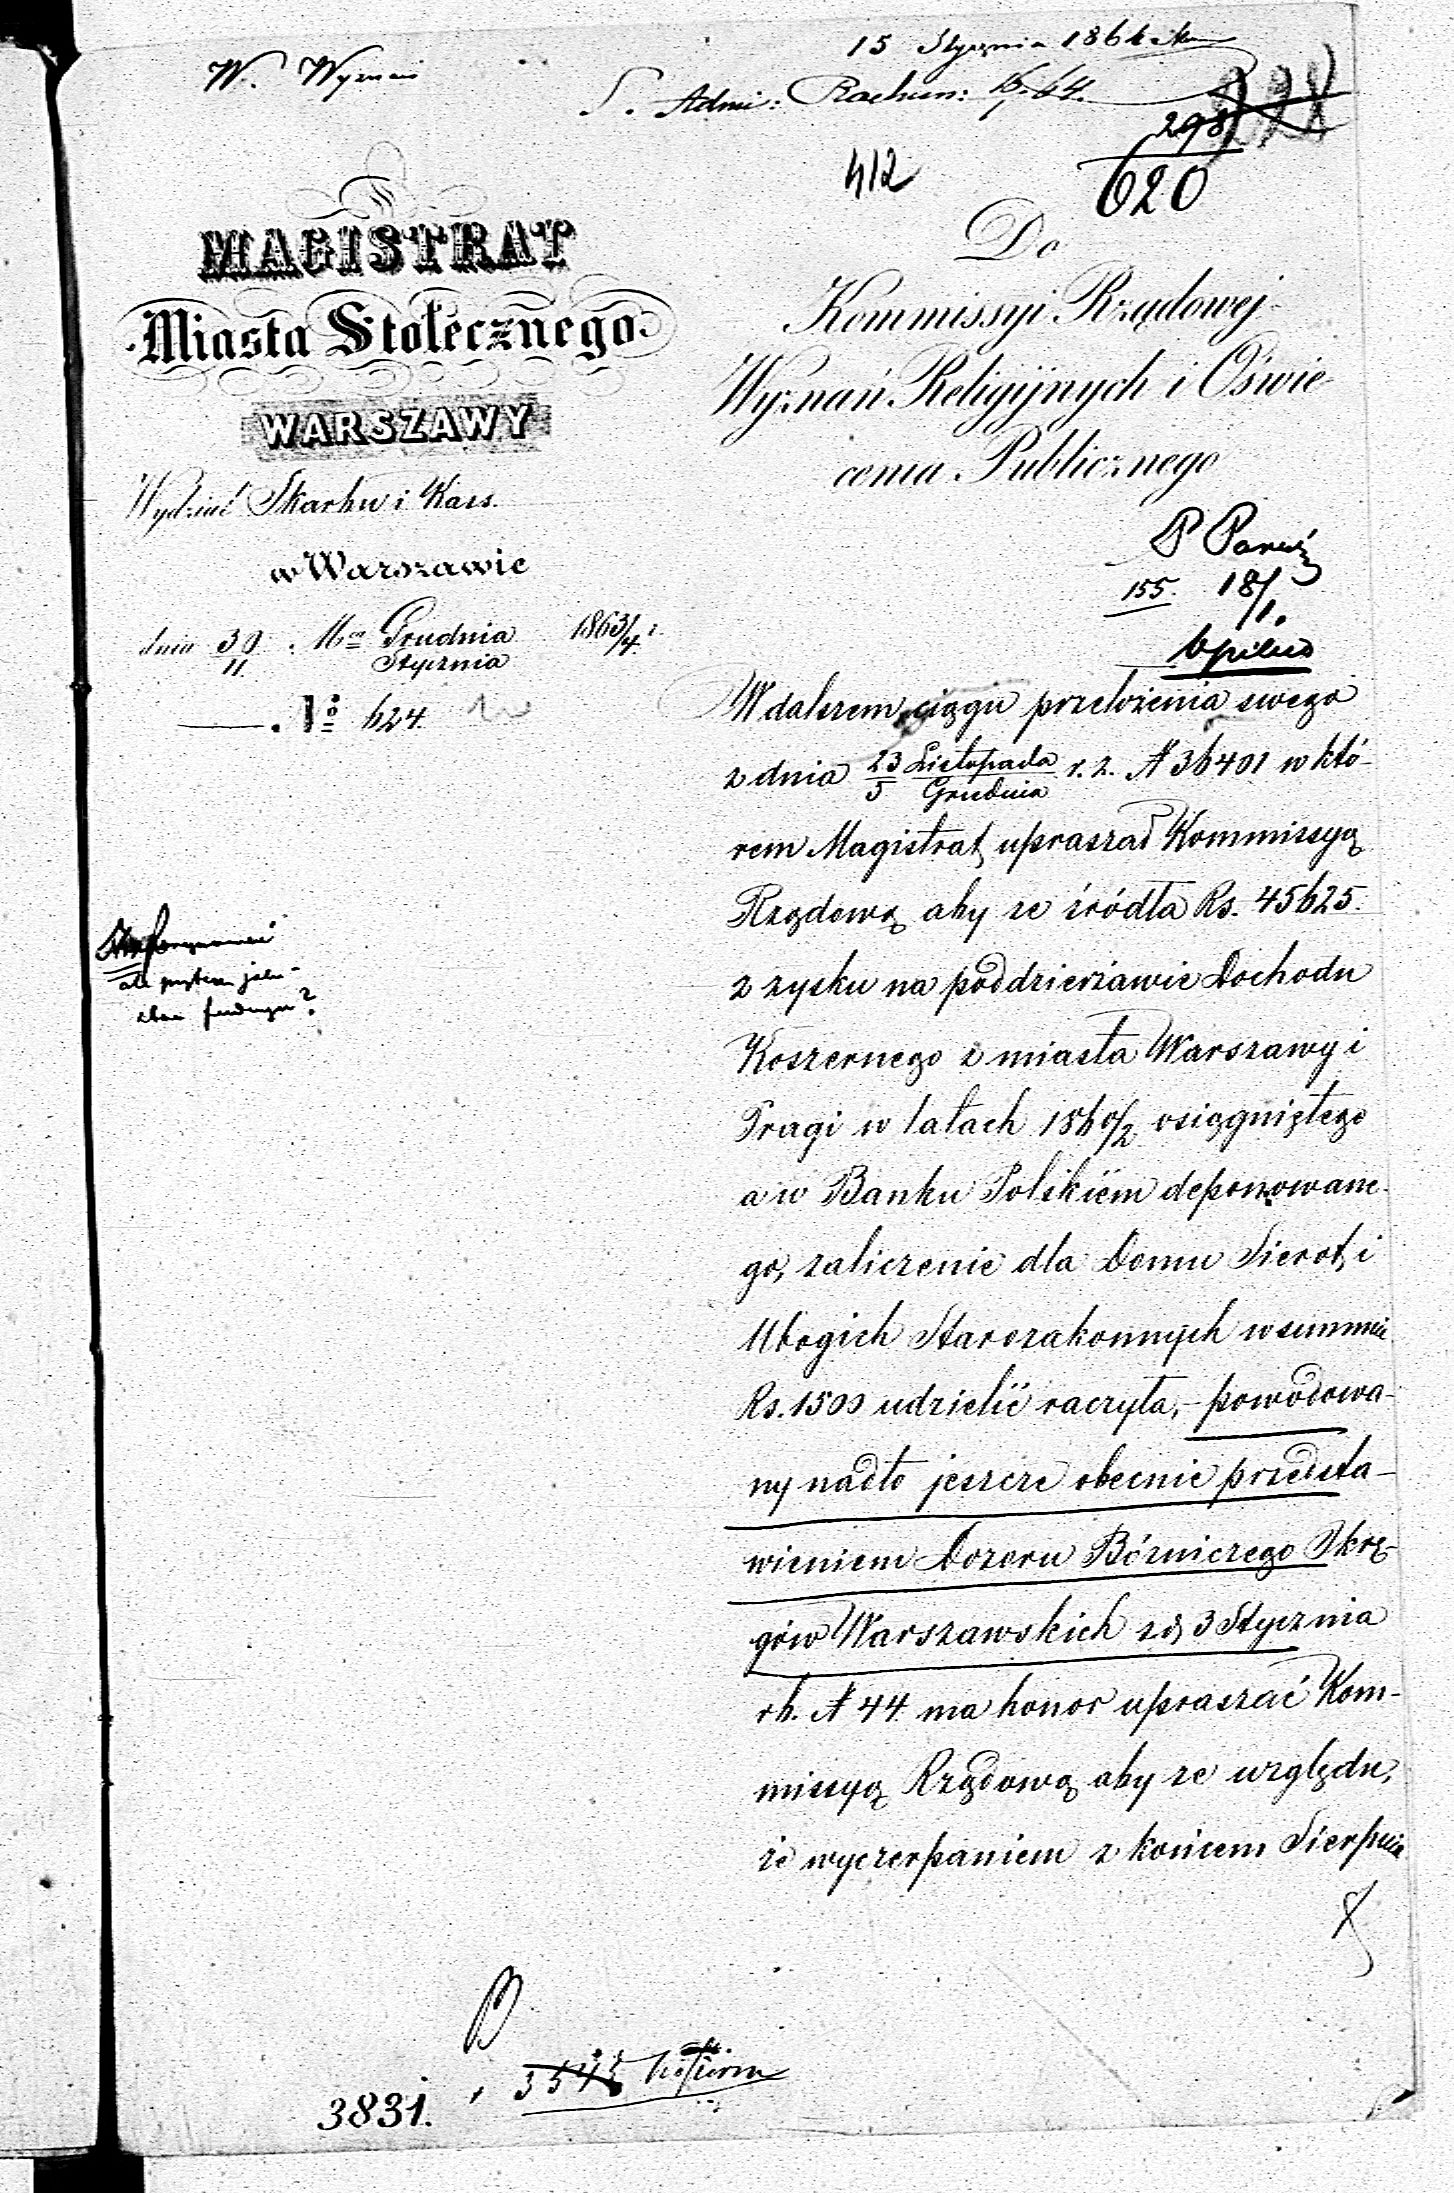 15 Stycznia 1864
W. Wyznań
S. Admi: Rachun: 16/1 64.
298
412
620
MAGISTRAT
Miasta Stołecznego
WARSZAWY
Wydział Skarbu i Kass.
w Warszawie
dnia 30/11 Grudnia/Stycznia 1863/4 r.
No 624
Do
Kommissyi Rządowej
Wyznań Religijnych i Oświe-
cenia Publicznego
P
155. 18/1.
W dalszem ciągu przełożenia swego
z dnia 23 Listopada/5 Grudnia r. z. N 36401 w któ-
rem Magistrat upraszał Kommissyą
Rządową aby ze źródła Rs. 45625.
z zysku na poddzierżawie Dochodu
Koszernego z miasta Warszawy i
Pragi w latach 1860/2 osiągniętego
a w Banku Polskiém deponowane-
go, zaliczenie dla Domu Sierot i
Ubogich Starozakonnych w summie
Rs. 1500 udzielić raczyła, - powodowa-
ny nadto jeszcze obecnie przedsta-
wieniem Dozoru Bóżniczego Okrę-
gów Warszawskich z d. 3 Stycznia
rb. N 44 ma honor upraszać Kom-
missyą Rządową aby ze względu,
że wyczerpaniem z końcem Sierpnia
3831.